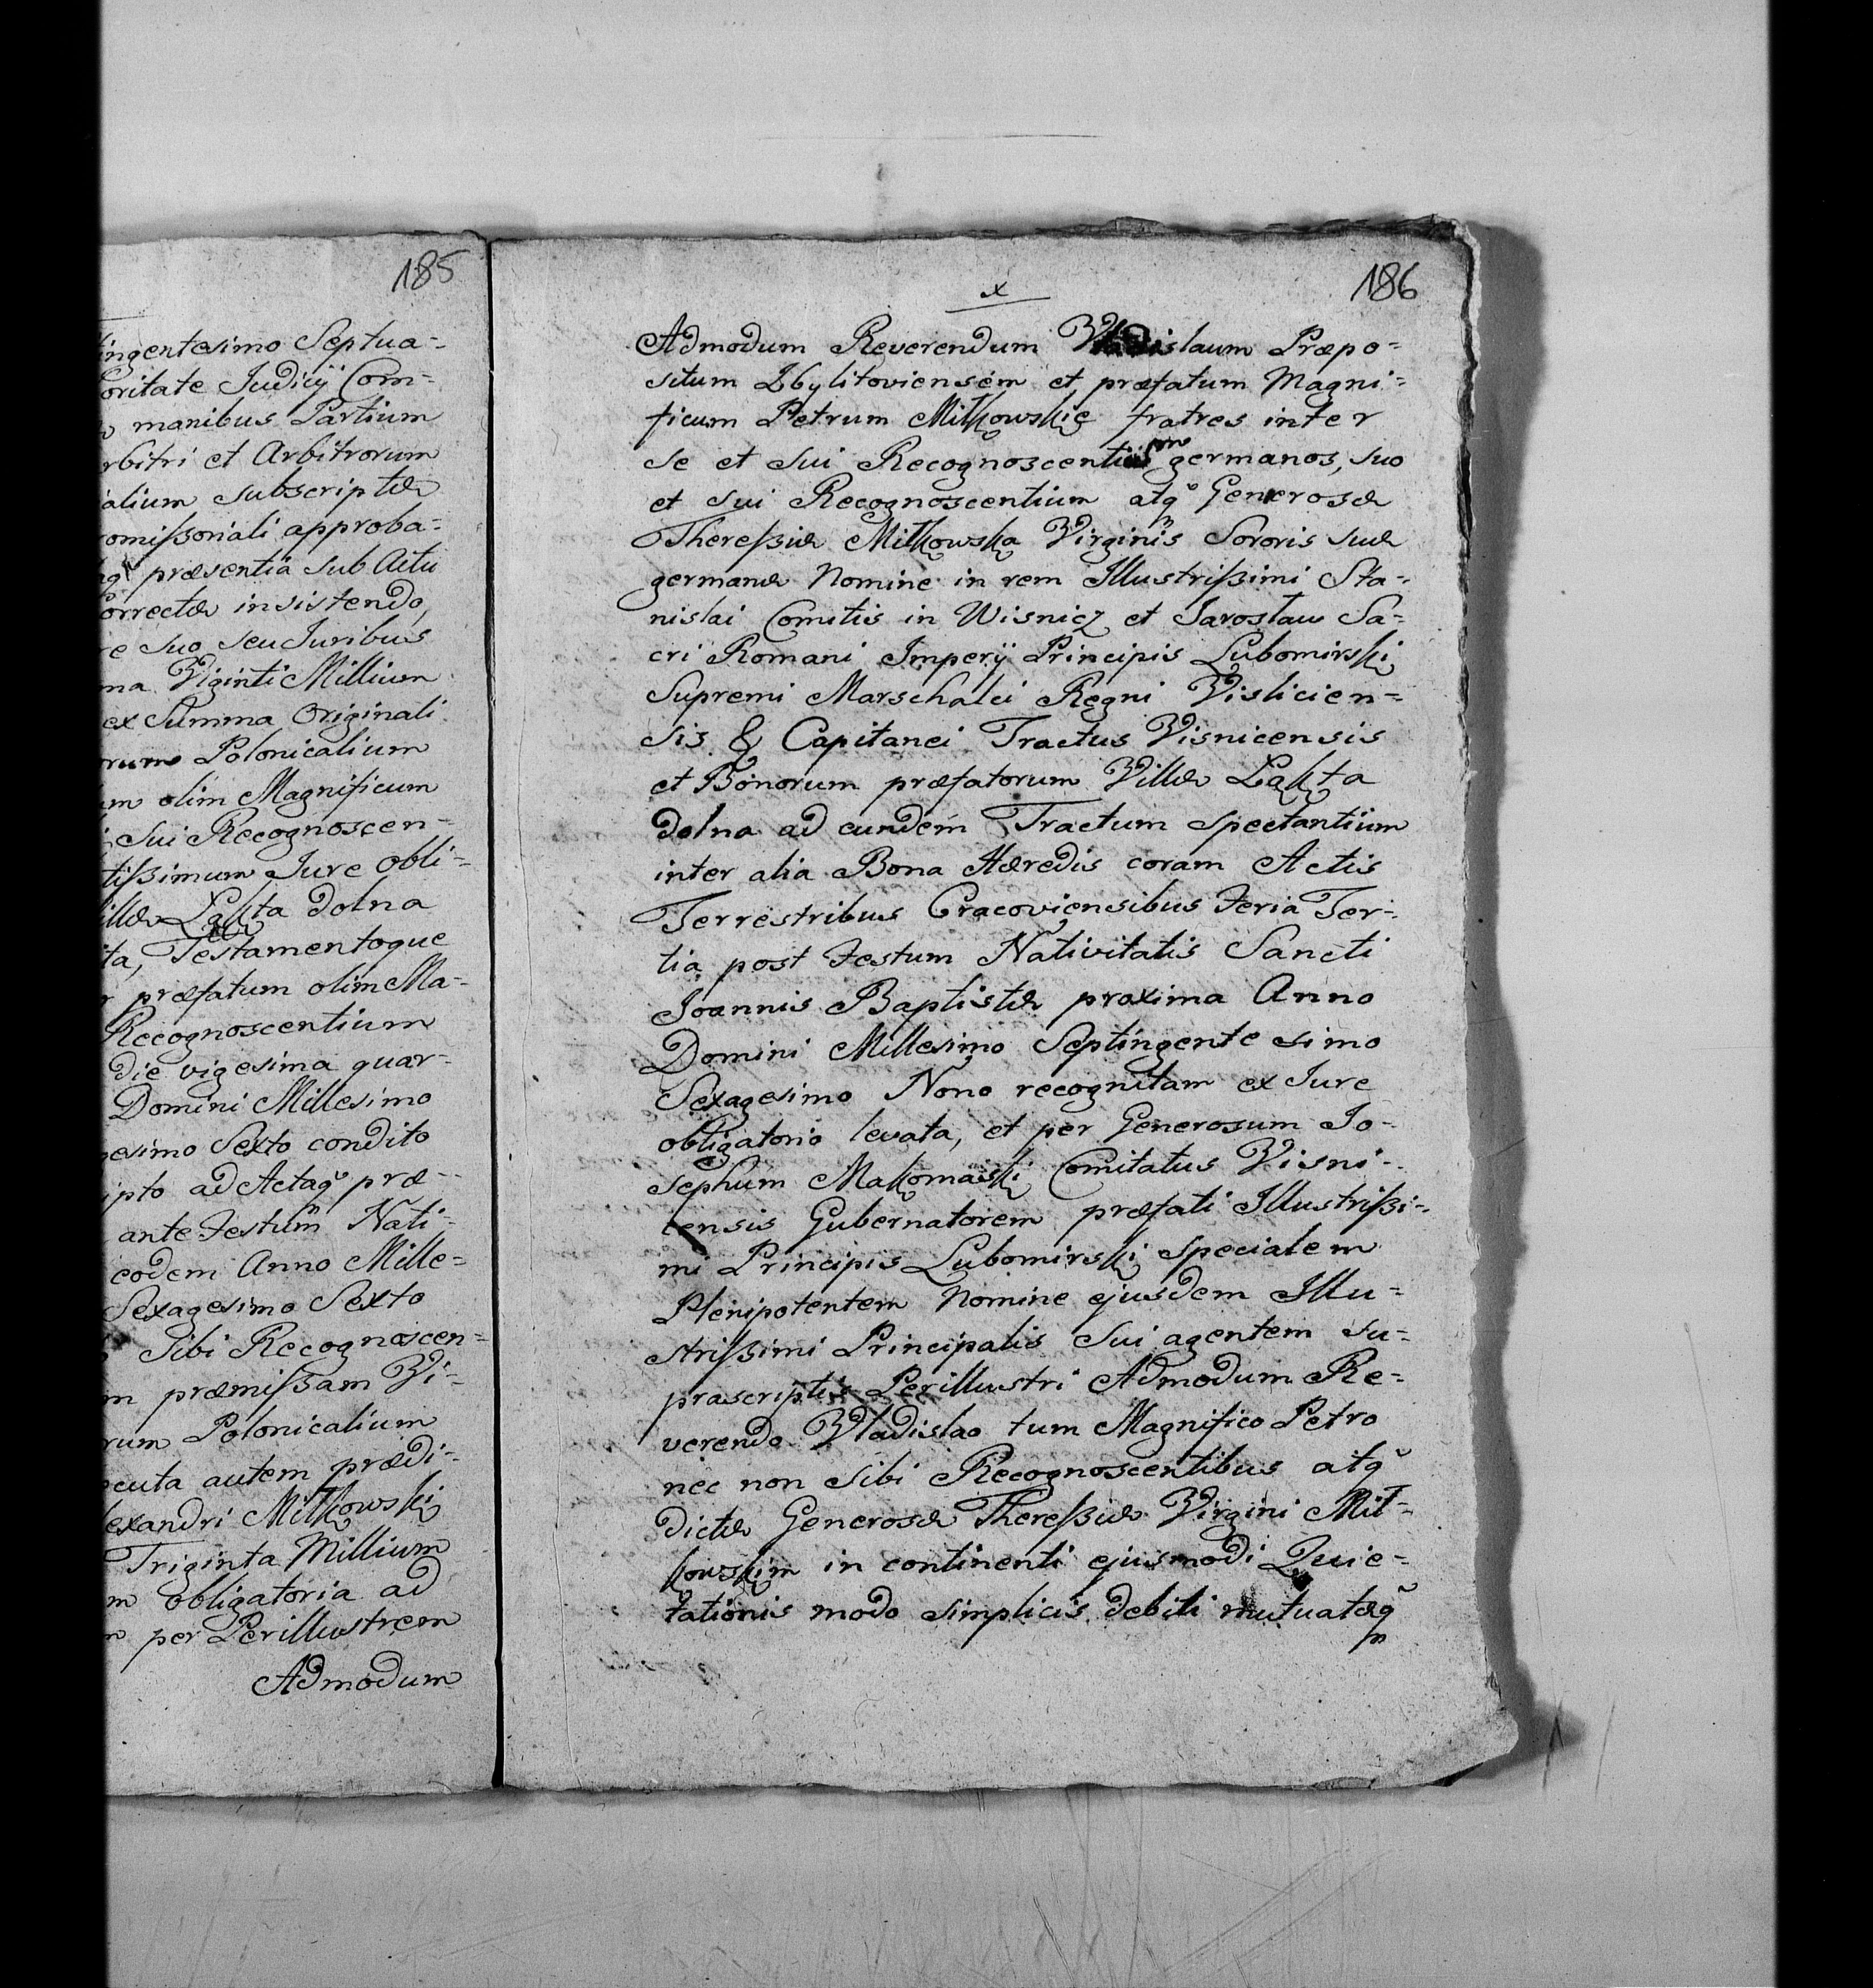 185
ingentesimo Septua-
oritate Judicij Com-
manibus Partium
rbitri et Arbitrorum
alium subscriptæ
omißoriali approba-
præsentia sub Actu
orrectæ insistendo,
e suo seu Juribus
ma Viginti Millium
ex Summa Originali
rum Polonicalium
m olim Magnificum
sui Recognoscen-
tißimum Jure obli-
illæ Łąkta dolna
ta, Testamentoque
r præfatum olim Ma-
Recognoscentium
die vigesima quar-
Domini Millesimo
esimo Sexto condito
ipto ad Actaq præ-
ante Festum Nati-
eodem Anno Mille-
Sexagesimo Sexto
Sibi Recognoscen-
m præmißam Vi-
rum Polonicalium
cuta autem prædi-
exandri Miłkowski
Triginta Millium
m obligatoria ad
per Perillustrem
Admodum
186
x
Admodum Reverendum Vladislaum Præpo-
situm Zbylitoviensem et præfatum Magni-
ficum Petrum Miłkowskie fratres inter
se et sui Recognoscentium germanos, suo
et sui Recognoscentium atq Generosæ
Thereßiæ Miłkowska Virginis Sororis suæ
germanæ Nomine in rem Illustrißimi Sta-
nislai Comitis in Wisnicz et Jarosław Sa-
cri Romani Imperij Principis Lubomirski
Supremi Marschalci Regni Vislicien-
sis & Capitanei Tractus Visnicensis
et Bonorum præfatorum Villæ Łąkta
dolna ad eundem Tractum spectantium
inter alia Bona Hæredis coram Actis
Terrestribus Cracoviensibus Feria Ter-
tia post Festum Nativitatis Sancti
Joannis Baptistæ proxima Anno
Domini Millesimo Septingente simo
Sexagesimo Nono recognitam ex Jure
obligatorio levata, et per Generosum Jo-
sephum Makomaski Comitatus Visni-
censis Gubernatorem præfati Illustrißi-
mi Principis Lubomirski specialem
Plenipotentem Nomine ejusdem Illu-
strißimi Principalis sui agentem su-
prascriptis Perillustri Admodum Re-
verendo Vladislao tum Magnifico Petro
nec non sibi Recognoscentibus atq
dictæ Generosæ Thereßiæ Virgini Mił-
kowskim in continenti ejusmodi Quie-
tationis modo simplicis debiti mutuatæq